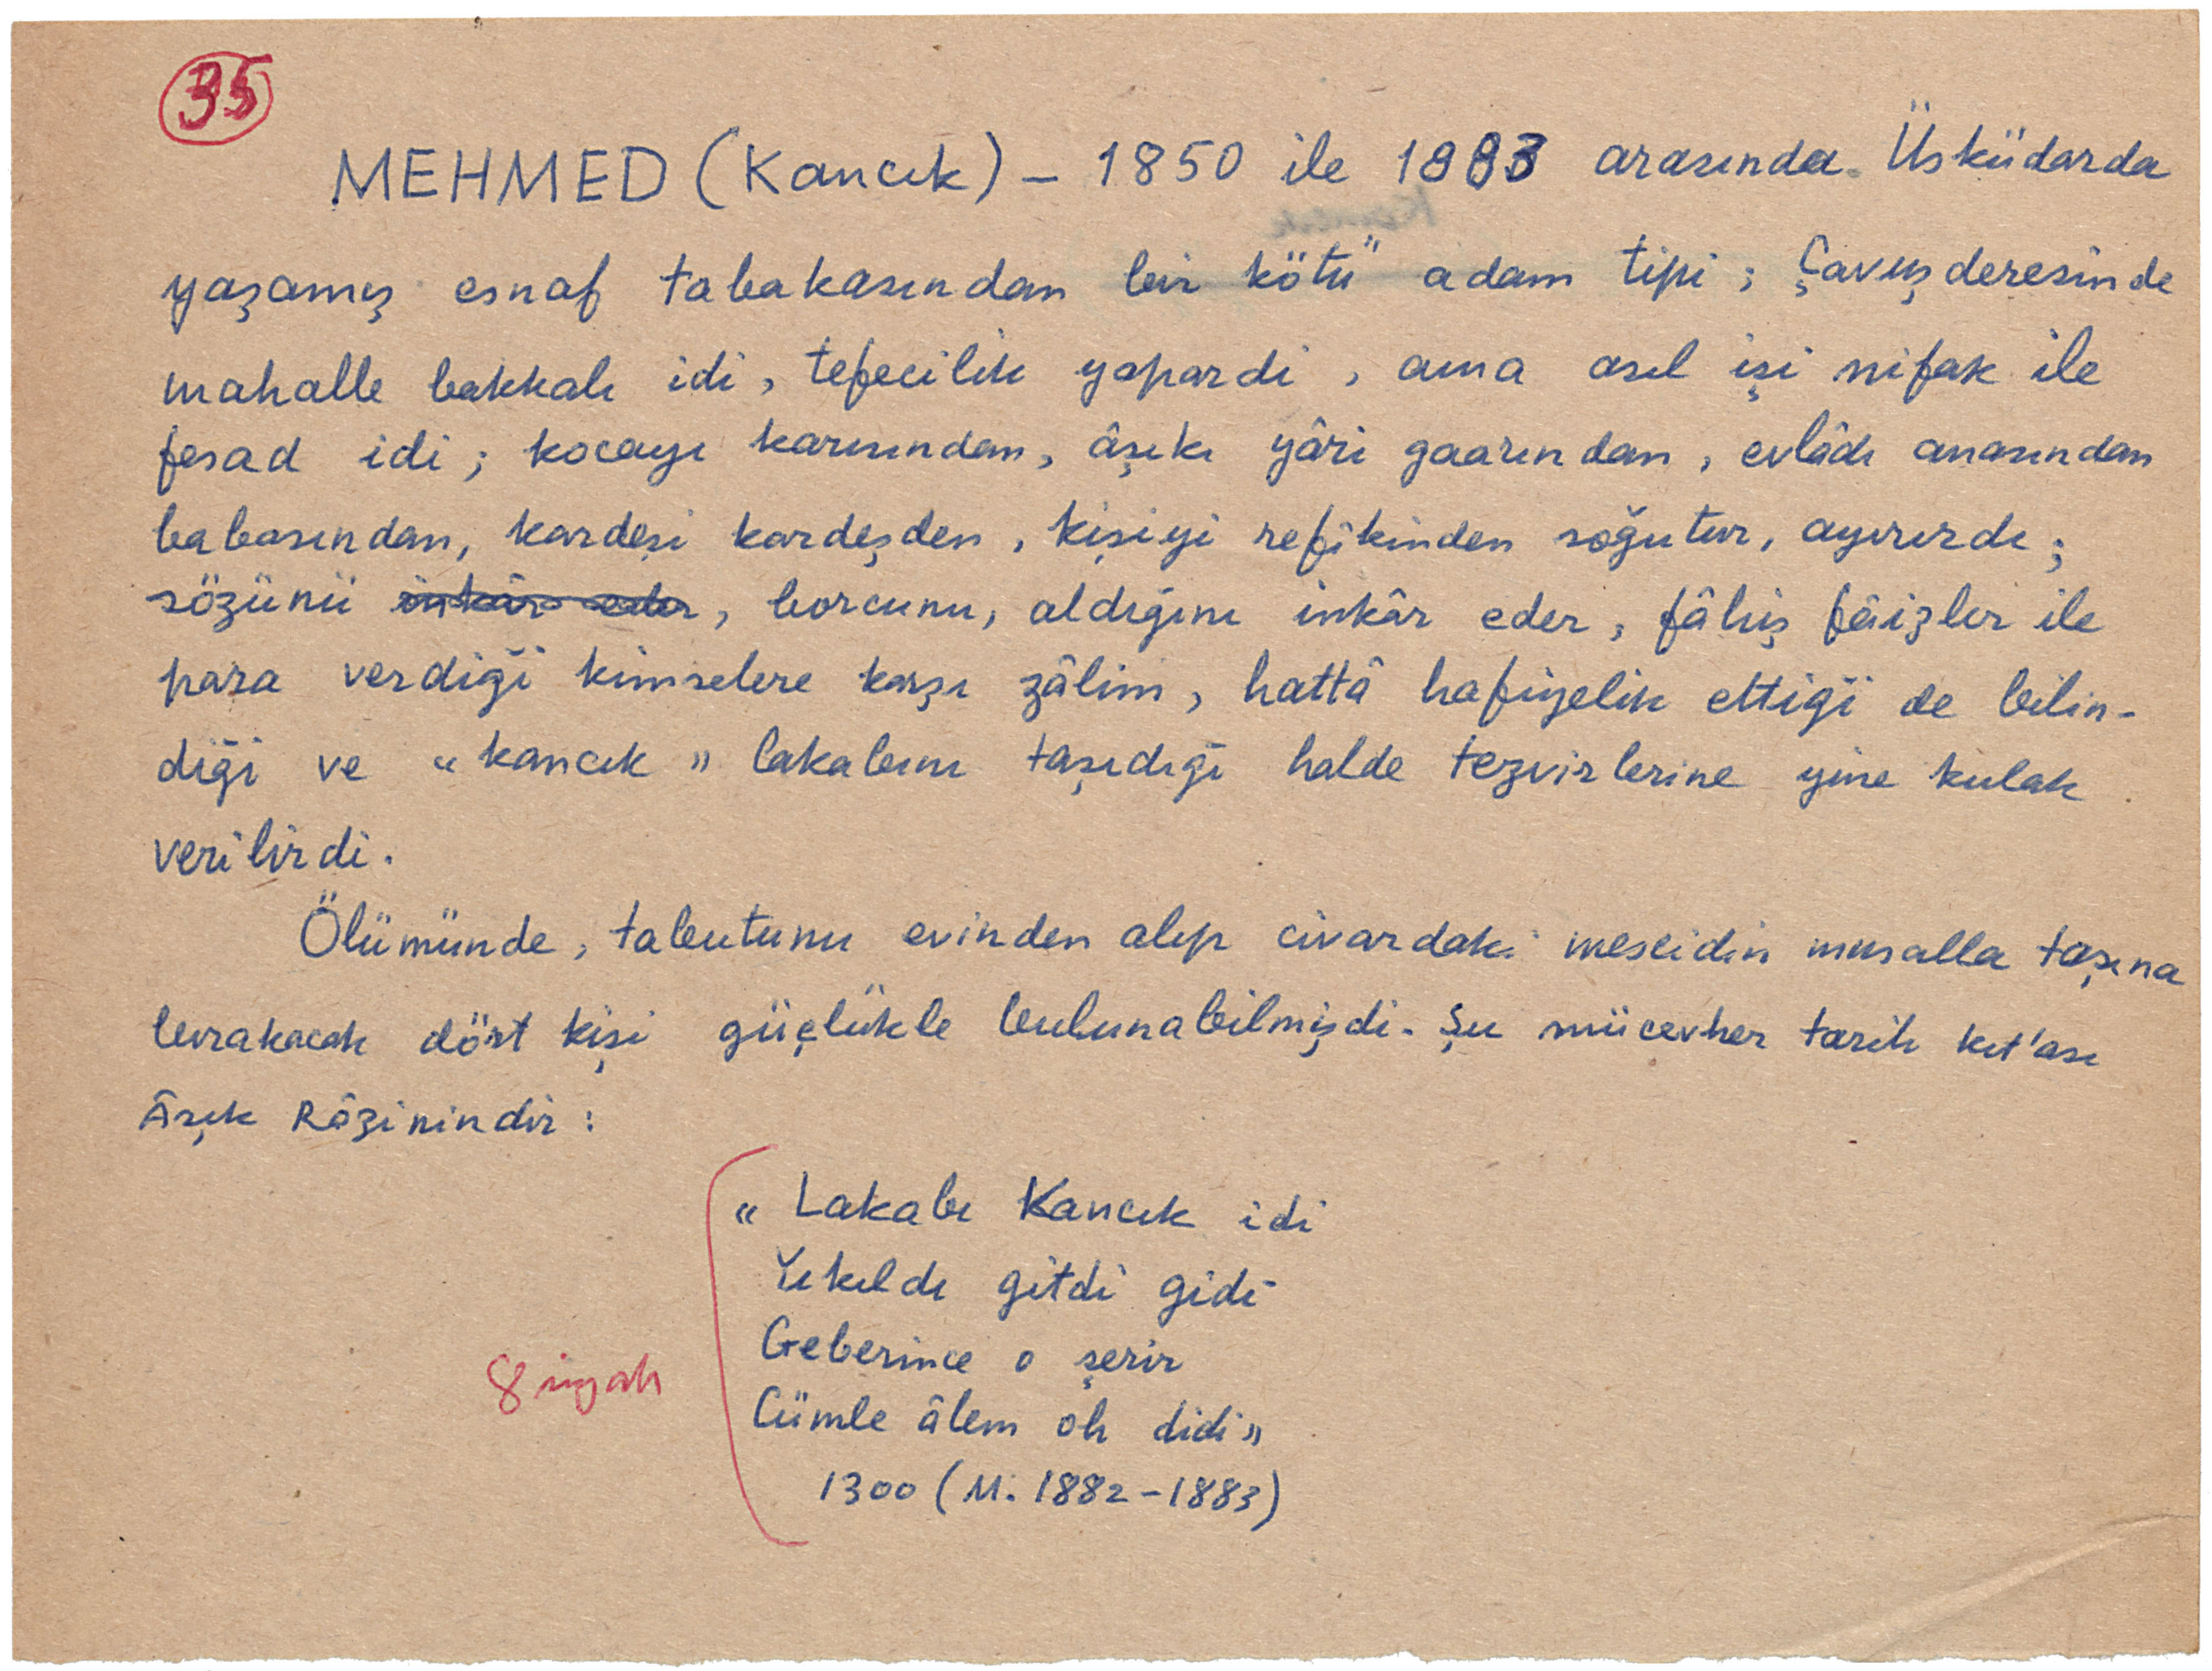 35
MEHMED (Kancık) – 1850 ile 1883 arasında Üsküdarda
yaşamış esnaf tabakasından bir kötü adam tipi; Çavuşderesinde
mahalle bakkalı idi, tefecilik yapardı, ama asıl işi nifak ile
fesad idi; kocayı karısından, âşıkı yâri gaarından, evlâdı anasından
babasından, kardeşi kardeşden, kişiyi refikinden soğutur, ayırırdı;
sözünü inkâr eder, borcunu, aldığını inkâr eder, fâhiş fâizler ile
para verdiği kimselere karşı zâlim, hattâ hafiyelik ettiği de bilin-
diği ve «kancık» lakabını taşıdığı halde tezvirlerine yine kulak
verilirdi.
Ölümünde, tabutunu evinden alıp civardaki mescidin musalla taşına
bırakacak dört kişi güçlükle bulunabilmişdi. Şu mücevher tarih kıt'ası
Âşık Râzinindir:
«Lakabı Kancık idi
Yıkıldı gitdi gidi
Geberince o şerir
8 siyah
Cümle âlem oh didi»
1300 (M. 1882–1883)